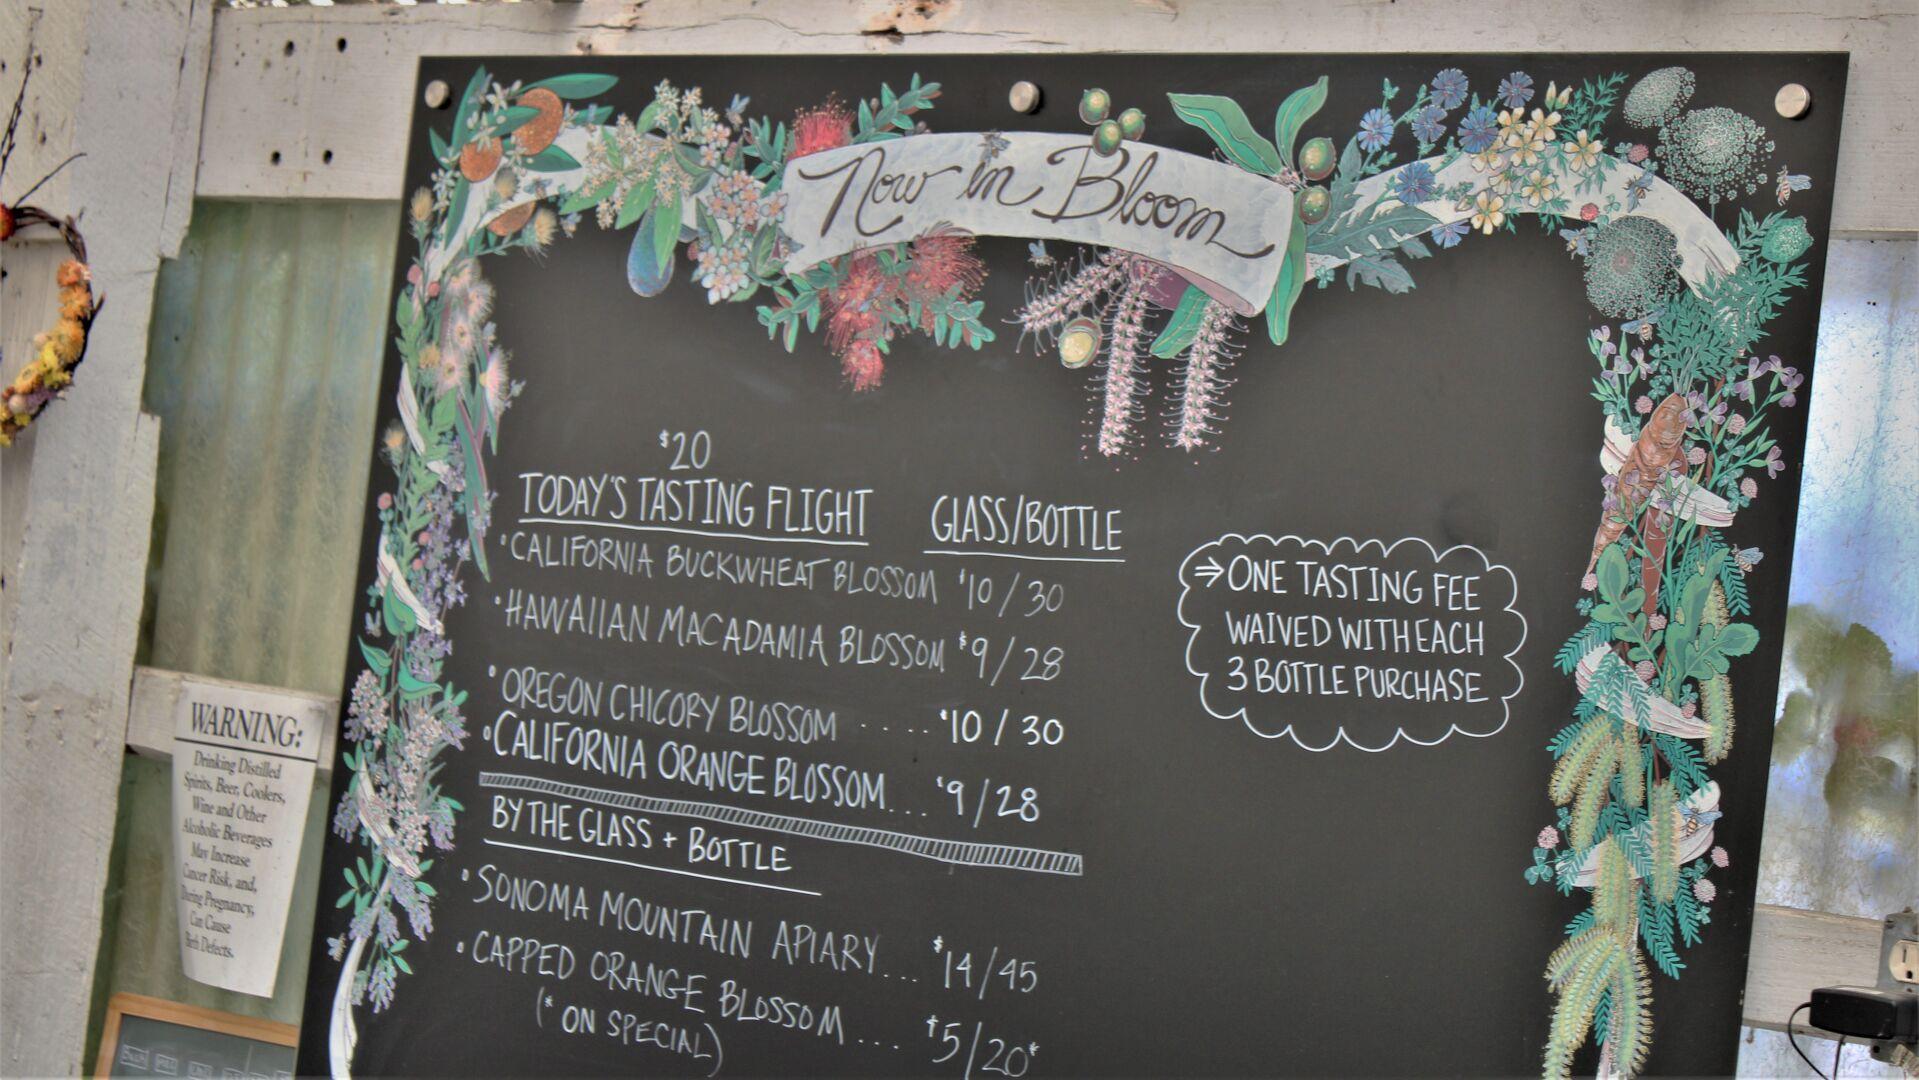 Now in Bloom
$20
TODAY'S TASTING FLIGHT GLASS/BOTTLE
• CALIFORNIA BUCKWHEAT BLOSSOM $10/30
• HAWAIIAN MACADAMIA BLOSSOM $9/28
• OREGON CHICORY BLOSSOM .... $10/30
• CALIFORNIA ORANGE BLOSSOM... $9/28
BY THE GLASS + BOTTLE
• SONOMA MOUNTAIN APIARY... $14/45
• CAPPED ORANGE BLOSSOM... $5/20*
(* ON SPECIAL)
⇒ ONE TASTING FEE
WAIVED WITH EACH
3 BOTTLE PURCHASE
WARNING:
Drinking Distilled
Spirits, Beer, Coolers,
Wine and Other
Alcoholic Beverages
May Increase
Cancer Risk, and,
During Pregnancy,
Can Cause
Birth Defects.